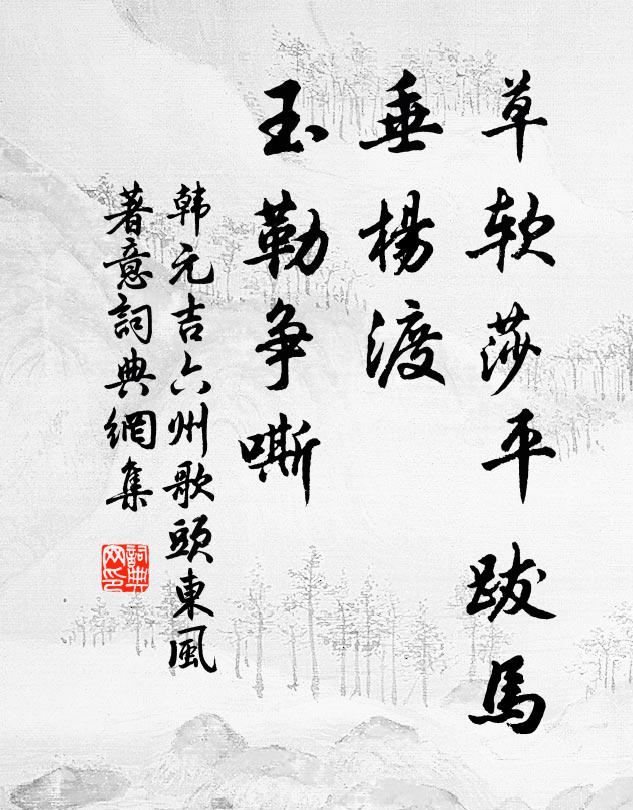 草软莎平跋馬
垂楊渡
玉勒争嘶
韩元吉六州歌頭東風
著意詞典網集
詞典网印